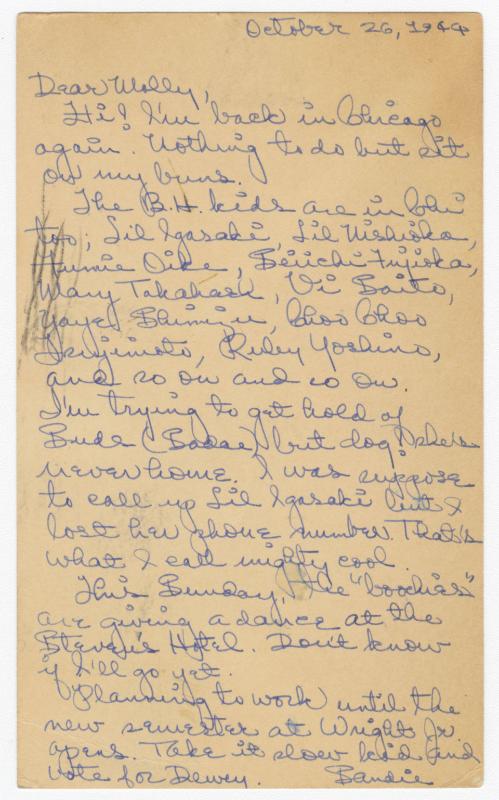 October 26, 1944
Dear Molly,
Hi! I'm back in Chicago
again. Nothing to do but sit
on my buns.
The B.H. kids are in Chi
too; Lil Igasaki, Lil Nishioka,
Fumie Oike, Seiichi Fujioka,
Mary Takahash, Vi Saito,
Yaye Shimizu, Choo Choo
Tsujimoto, Riley Yoshino,
and so on and so on.
I'm trying to get hold of
Suds (Sadae) but dog! she's
never home. I was suppose
to call up Lil Igasaki but I
lost her phone number. That's
what I call mighty cool.
This Sunday, the "boochies"
are giving a dance at the
Steven's Hotel. Don't know
if I'll go yet.
Planning to work until the
new semester at Wright Jr.
opens. Take it slow kid and
vote for Dewey. Sandie